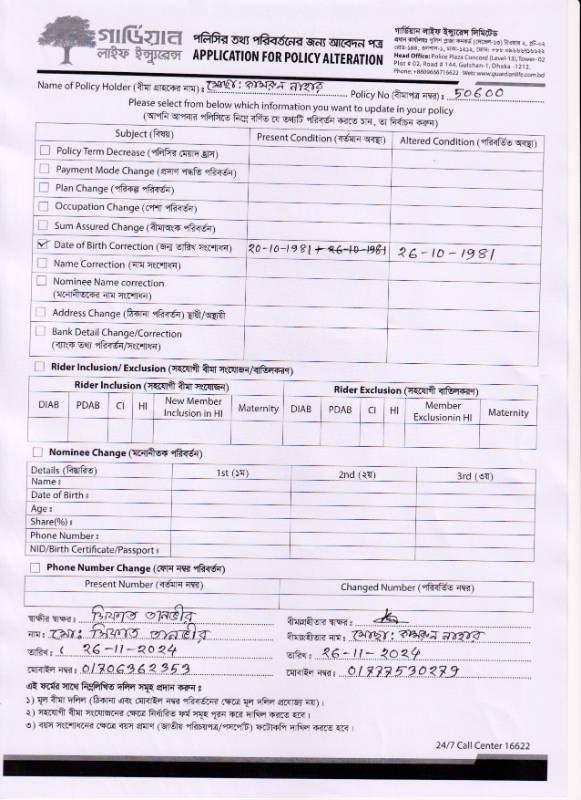 গার্ডিয়ান
লাইফ ইন্স্যুরেন্স
পলিসির তথ্য পরিবর্তনের জন্য আবেদন পত্র
APPLICATION FOR POLICY ALTERATION
গার্ডিয়ান লাইফ ইন্স্যুরেন্স লিমিটেড
Head Office: Police Plaza Concord (Level-13), Tower-02
Plot # 02, Road # 144, Gulshan-1, Dhaka -1212.
Phone: +8809666716622 Web: www.guardianlife.com.bd
Name of Policy Holder (বীমা গ্রাহকের নাম) : মোছা: কামরুন নাহার Policy No (বীমাপত্র নম্বর) : 50600
Please select from below which information you want to update in your policy
(আপনি আপনার পলিসিতে নিম্নে বর্ণিত যে তথ্যটি পরিবর্তন করতে চান, তা নির্বাচন করুন)
Subject (বিষয়) Present Condition (বর্তমান অবস্থা) Altered Condition (পরিবর্তিত অবস্থা)
Policy Term Decrease (পলিসির মেয়াদ হ্রাস)
Payment Mode Change (প্রদান পদ্ধতি পরিবর্তন)
Plan Change (পরিকল্প পরিবর্তন)
Occupation Change (পেশা পরিবর্তন)
Sum Assured Change (বীমাঅংক পরিবর্তন)
Date of Birth Correction (জন্ম তারিখ সংশোধন) 20-10-1981 26-10-1981 26-10-1981
Name Correction (নাম সংশোধন)
Nominee Name correction
(মনোনীতকের নাম সংশোধন)
Address Change (ঠিকানা পরিবর্তন) স্থায়ী/অস্থায়ী
Bank Detail Change/Correction
(ব্যাংক তথ্য পরিবর্তন/সংশোধন)
Rider Inclusion/ Exclusion (সহযোগী বীমা সংযোজন/বাতিলকরণ)
Rider Inclusion (সহযোগী বীমা সংযোজন) Rider Exclusion (সহযোগী বাতিলকরণ)
DIAB PDAB CI HI New Member Inclusion in HI Maternity DIAB PDAB CI HI Member Exclusionin HI Maternity
Nominee Change (মনোনীতক পরিবর্তন)
Details (বিস্তারিত) 1st (১ম) 2nd (২য়) 3rd (৩য়)
Name :
Date of Birth :
Age :
Share(%) :
Phone Number :
NID/Birth Certificate/Passport :
Phone Number Change (ফোন নম্বর পরিবর্তন)
Present Number (বর্তমান নম্বর) Changed Number (পরিবর্তিত নম্বর)
স্বাক্ষীর স্বাক্ষর : সিফাত তানভীর বীমাগ্রহীতার স্বাক্ষর :
নাম: মো: সিফাত তানভীর বীমাগ্রহীতার নাম : মোছা: কামরুন নাহার
তারিখ: 26-11-2024 তারিখ : 26-11-2024
মোবাইল নম্বর: 01706362353 মোবাইল নম্বর: 01777530279
এই ফর্মের সাথে নিম্নলিখিত দলিল সমূহ প্রদান করুন :
১) মূল বীমা দলিল (ঠিকানা এবং মোবাইল নম্বর পরিবর্তনের ক্ষেত্রে মূল দলিল প্রযোজ্য নয়)।
২) সহযোগী বীমা সংযোজনের ক্ষেত্রে নির্ধারিত ফর্ম সমূহ পূরন করে দাখিল করতে হবে।
৩) বয়স সংশোধনের ক্ষেত্রে বয়স প্রমাণ (জাতীয় পরিচয়পত্র/পাসপোর্ট) ফটোকপি দাখিল করতে হবে।
24/7 Call Center 16622